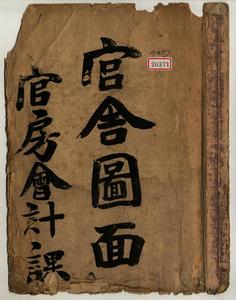 官舎圖面
官房會計課
20371